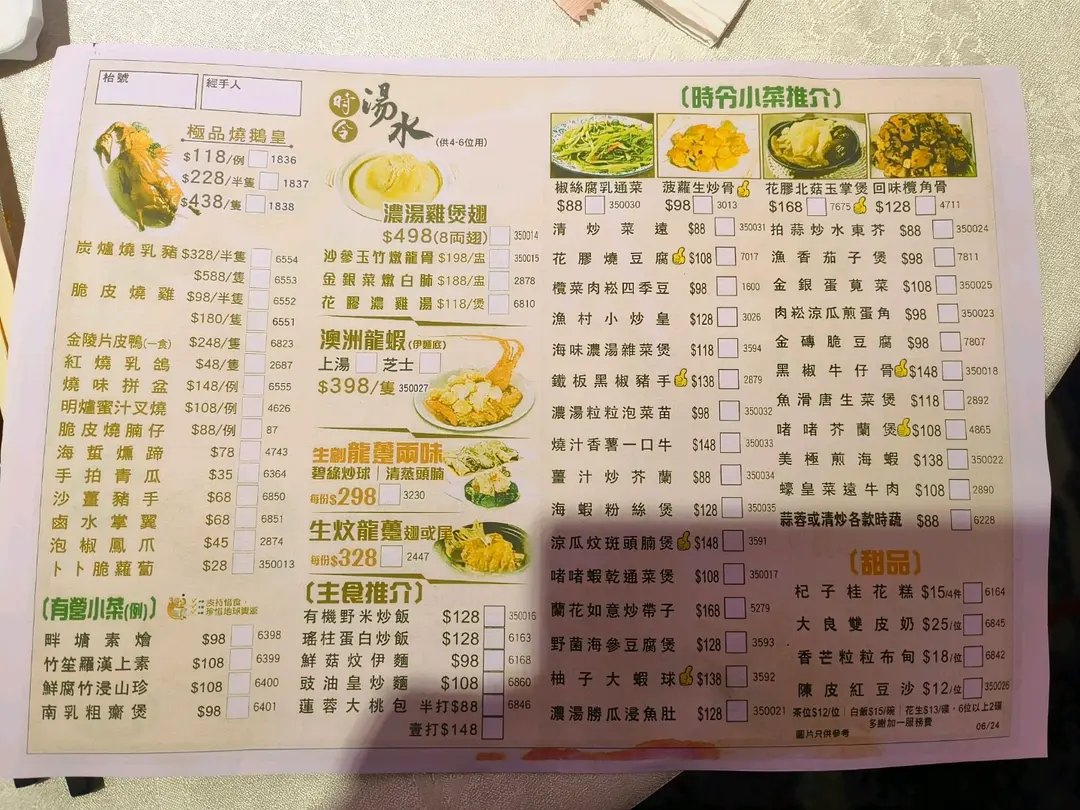 枱號
經手人
極品燒鵝皇
$118/例 1836
$228/半隻 1837
$438/隻 1838
炭爐燒乳豬 $328/半隻 6554
$588/隻 6553
脆皮燒雞 $98/半隻 6552
$180/隻 6551
金陵片皮鴨(一食) $248/隻 6823
紅燒乳鴿 $48/隻 2687
燒味拼盆 $148/例 6555
明爐蜜汁叉燒 $108/例 4626
脆皮燒腩仔 $88/例 87
海蜇燻蹄 $78 4743
手拍青瓜 $35 6364
沙薑豬手 $68 6850
鹵水掌翼 $68 6851
泡椒鳳爪 $45 2874
卜卜脆蘿蔔 $28 350013
(有營小菜(例))
支持惜食
珍惜地球資源
畔塘素燴 $98 6398
竹笙羅漢上素 $108 6399
鮮腐竹浸山珍 $108 6400
南乳粗齋煲 $98 6401
時令湯水
(供4-6位用)
濃湯雞煲翅
$498(8両翅) 350014
沙參玉竹燉龍骨 $198/盅 350015
金銀菜燉白肺 $188/盅 2878
花膠濃雞湯 $118/煲 6810
澳洲龍蝦(伊麵底)
上湯 芝士
$398/隻 350027
生劏龍躉兩味
碧綠炒球|清蒸頭腩
每份$298 3230
生炆龍躉翅或尾
每份$328 2447
(主食推介)
有機野米炒飯 $128 350016
瑤柱蛋白炒飯 $128 6163
鮮菇炆伊麵 $98 6168
豉油皇炒麵 $108 6860
蓮蓉大桃包 半打$88 6846
壹打$148
(時令小菜推介)
椒絲腐乳通菜
$88 350030
菠蘿生炒骨
$98 3013
花膠北菇玉掌煲
$168 7675
回味欖角骨
$128 4711
清炒菜遠 $88 350031
花膠燒豆腐 $108 7017
欖菜肉崧四季豆 $98 1600
漁村小炒皇 $128 3026
海味濃湯雜菜煲 $118 3594
鐵板黑椒豬手 $138 2879
濃湯粒粒泡菜苗 $98 350032
燒汁香薯一口牛 $148 350033
薑汁炒芥蘭 $88 350034
海蝦粉絲煲 $128 350035
涼瓜炆斑頭腩煲 $148 3591
啫啫蝦乾通菜煲 $108 350017
蘭花如意炒帶子 $168 5279
野菌海參豆腐煲 $128 3593
柚子大蝦球 $138 3592
濃湯勝瓜浸魚肚 $128 350021
拍蒜炒水東芥 $88 350024
漁香茄子煲 $98 7811
金銀蛋莧菜 $108 350025
肉崧涼瓜煎蛋角 $98 350023
金磚脆豆腐 $98 7807
黑椒牛仔骨 $148 350018
魚滑唐生菜煲 $118 2892
啫啫芥蘭煲 $108 4865
美極煎海蝦 $138 350022
蠔皇菜遠牛肉 $108 2890
蒜蓉或清炒各款時蔬 $88 6228
(甜品)
杞子桂花糕 $15/4件 6164
大良雙皮奶 $25/位 6845
香芒粒粒布甸 $18/位 6842
陳皮紅豆沙 $12/位 350026
茶位$12/位|白飯$15/碗|花生$13/碟,6位以上2碟
多謝加一服務費
圖片只供參考
06/24